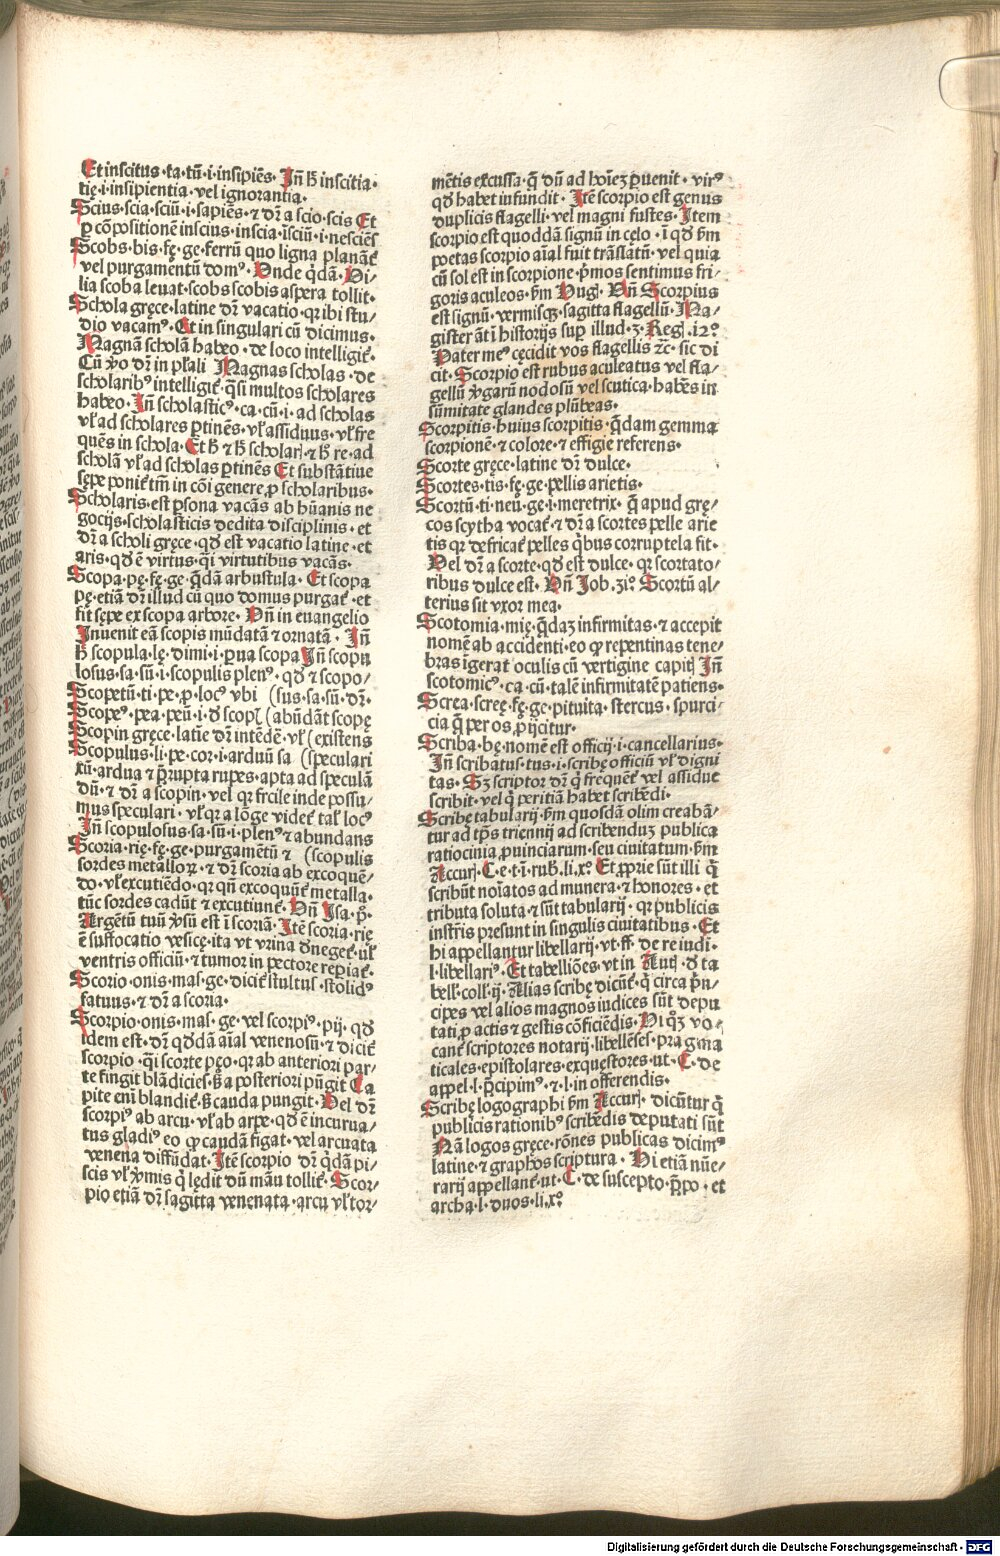 Et inscitus·ta·tū·i·insipiēs· Jn̄ h̄ inscitia·
tię·i·insipientia·vel ignorantia·
Scius·scia·sciū·i·sapiēs·⁊ dr̄ a scio·scis Et
ꝑ cōpositionē inscius·inscia·īsciū·i·nesciēs
Scobs·bis·fę·ge·ferrū quo ligna planant̄
vel purgamentū domꝰ· Vnde qͥdā· Vi-
lia scoba leuat·scobs scobis aspera tollit·
Schola gręce·latine dr̄ vacatio·qꝛ ibi stu/
dio vacamꝰ· Et in singulari cū dicimus·
Magnā scholā habeo·de loco intelligit̄·
Cū ꝟo dr̄ in pl̄ali Magnas scholas·de
scholaribꝰ intelligit̄·qͣsi multos scholares
habeo· Jn̄ scholasticꝰ·ca·cū·i·ad scholas
vl̓ ad scholares ꝑtinēs·vl̓ assiduus·vl̓ fre
quēs in schola· Et h̄ ⁊ h̄ scholarꝭ·⁊ h̄ re·ad
scholā vl̓ ad scholas ꝑtinēs Et substātiue
sępe ponit̄ tm̄ in cōi genere ꝓ scholaribus·
Scholaris·est ꝑsona vacās ab hūanis ne
gocijs·scholasticis dedita disciplinis·et
dr̄ a scholi gręce·qd̓ est vacatio latine·et
aris·qd̓ ē virtus·qͥ virtutibus vacās·
Scopa·pę·fę·ge·qͣdā arbustula· Et scopa
pę·etiā dr̄ illud cū quo domus purgat̄·et
fit sępe ex scopa arbore· Vn̄ in euangelio
Jnuenit eā scopis mūdatā ⁊ ornatā· Jn̄
h̄ scopula·lę·dimi·i·ꝑua scopa Jn̄ scopu
losus·sa·sū·i·scopulis plenꝰ·qd̓ ⁊ scopo/
Scopetū·ti·pe·ꝓ·locꝰ vbi (sus·sa·sū·dr̄·
Scopeꝰ·pea·peū·i·d̓ scopꝭ (abūdāt scopę
Scopin gręce·latīe dr̄ intēdē·vl̓ (existens
Scopulus·li·pe·cor·i·arduū sa (speculari
xū·ardua ⁊ p̄rupta rupes·apta ad speculā
dū·⁊ dr̄ a scopin·vel qꝛ facile inde possu/
mus speculari·vl̓ qꝛ a lōge videt̄ tal̓ locꝰ
Jn̄ scopulosus·sa·sū·i·plenꝰ ⁊ abundans
Scoria·rię·fę·ge·purgamētū ⁊ (scopulis
sordes metalloꝝ·⁊ dr̄ scoria ab excoquē/
do·vl̓ excutiēdo·qꝛ qn̄ excoquūt̄ metalla·
tūc sordes cadūt ⁊ excutiunt̄· Vn̄ Isa·pͦ·
Argētū tuū ꝟsū est ī scoriā· Jtē scoria·rię
ē suffocatio vesicę·ita vt vrina d̓neget̄·ul̓
ventris officiū·⁊ tumor in pectore reꝑiat̄·
Scorio·onis·mas·ge·dicit̄ stultus·stolidꝰ
fatuus·⁊ dr̄ a scoria·
Scorpio·onis·mas·ge·vel scorpiꝰ·pij·qd̓
idem est·dr̄ qd̓dā aīal venenosū·⁊ dicit̄
scorpio·qͣi scorte pęo·qꝛ ab anteriori par/
te fingit blādicies·s̄ a posteriori pūgit Ca
pite enī blandit̄·s̄ cauda pungit· Vel dr̄
scorpiꝰ ab arcu·vl̓ ab arpe·qd̓ ē incurua/
tus gladiꝰ eo ꝙ caudā figat·vel arcuata
venena diffūdat· Jtē scorpio dr̄ qͥdā pi/
scis vl̓ ꝟmis qͥ lędit dū māu tollit̄· Scor-
pio etiā dr̄ sagitta venenata·arcu vl̓ tor/
mētis excussa·q̄ dū ad hoīeꝫ ꝑuenit·virꝰ
qd̓ habet infundit· Jtē scorpio est genus
duplicis flagelli·vel magni fustes· Jtem
scorpio est quoddā signū in cęlo·ī qd̓ s̄m
poetas scorpio aīal fuit trāslatū·vel quia
cū sol est in scorpione·pͥmos sentimus fri/
goris aculeos·s̄m Vugꝭ· Vn̄ Scorpius
est signū·vermisqꝫ·sagitta flagellū· Ma/
gister āt ī historijs suꝑ illud·3·Regꝭ·12ͦ
Pater meꝰ cęcidit vos flagellis ⁊c̄·sic di
cit· Scorpio est rubus aculeatus vel fla/
gellū ꝟgarū nodosū vel scutica·habēs in
sūmitate glandes plūbeas·
Scorpitis·huius scorpitis·qͣdam gemma
scorpionē·⁊ colore·⁊ effigie referens·
Scorte gręce·latine dr̄ dulce·
Scortes·tis·fę·ge·pellis arietis·
Scortū·ti·neu·ge·i·meretrix·q̄ apud gre/
cos scytha vocat̄·⁊ dr̄ a scortes pelle arie
tis qꝛ defricat̄ pelles qͥbus corruptela fit·
Vel dr̄ a scorte·qd̓ est dulce·qꝛ scortato/
ribus dulce est· Vn̄ Job·3iͦ Scortū al/
terius sit vxor mea·
Scotomia·mię·qͣdaꝫ infirmitas·⁊ accepit
nomē ab accidenti·eo ꝙ repentinas tene/
bras īgerat oculis cū vertigine capitꝭ Jn̄
scotomicꝰ·ca·cū·talē infirmitatē patiens·
Screa·screę·fę·ge·pituita·stercus·spurci/
cia q̄ per os ꝓijcitur·
Scriba·bę·nomē est officij·i·cancellarius·
Jn̄ scribatus·tus·i·scribę officiū vl̓ digni
tas· Sꝫ scriptor dr̄ qͥ frequēt̄ vel assidue
scribit·vel qͥ peritiā habet scribēdi·
Scribę tabularij s̄m quosdā olim creabā/
tur ad tp̄s triennij ad scribenduꝫ publica
ratiocinia ꝓuinciarum·seu ciuitatum·s̄m
Accurꝭ·C·e·t·i·rub̓·li·xͦ· Et ꝓprie sūt illi qͥ
scribūt noīatos ad munera·⁊ honores·et
tributa soluta·⁊ sūt tabularij·qꝛ publicis
instr̄is presunt in singulis ciuitatibus· Et
hi appellantur libellarij·vt·ff·de re iudi·
l·libellariꝰ· Et tabelliōes·vt in Autꝭ·d̓ ta
bell·coll·ij· Alias scribę dicūt̄·qͥ circa prī/
cipes vel alios magnos iudices sūt depu
tati ꝓ actis ⁊ gestis cōficiēdis· Hi qͦꝫ vo/
cant̄ scriptores notarij·libellēses·pragma
ticales·epistolares·exquestores·ut·C·de
appel·l·p̄cipimꝰ·⁊·l·in offerendis·
Scribę logographi s̄m Accurꝭ·dicūtur qͥ
publicis rationibꝰ scribēdis deputati sūt
Nā logos gręce·rōnes publicas dicimꝰ
latine·⁊ graphos scriptura· Hi etiā nūe/
rarij appellant̄·ut·C·de suscepto·p̄po·et
archa·l·duos·li·xͦ
Digitalisierung gefördert durch die Deutsche Forschungsgemeinschaft · DFG